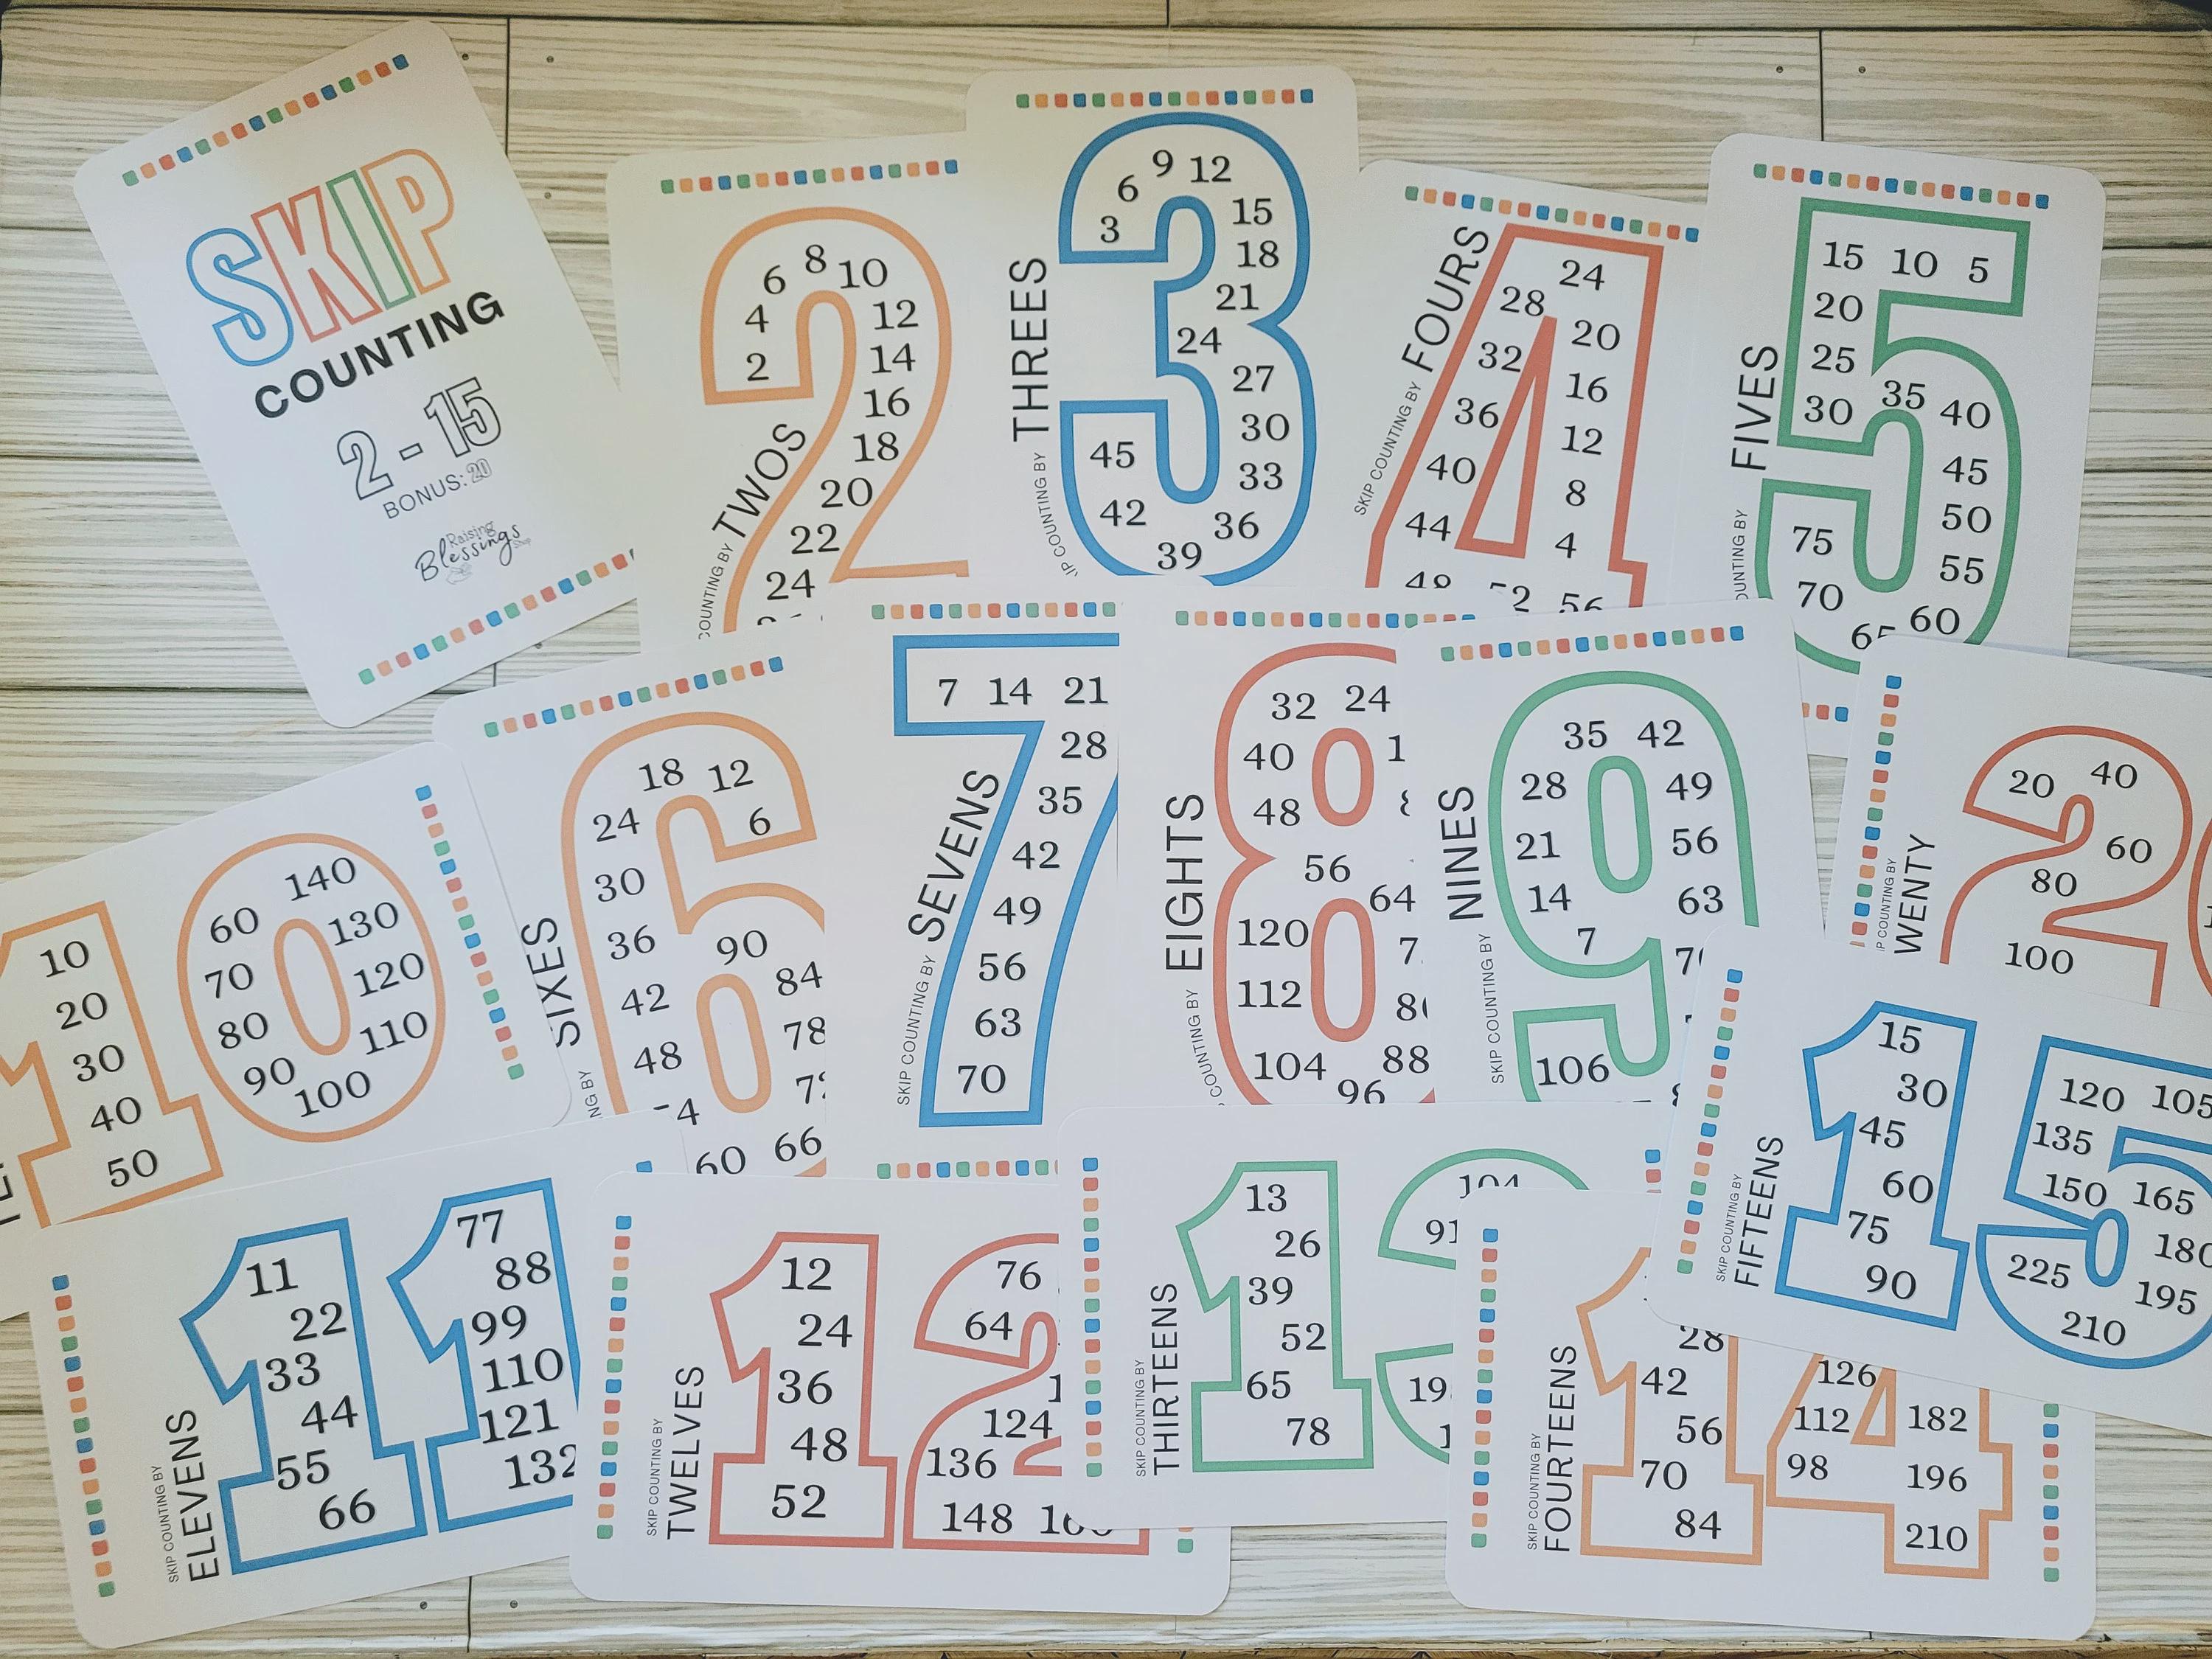 SKIP
COUNTING
2 - 15
BONUS: 20
Raising
Blessings
Shop
COUNTING BY TWOS
2
4
6 8 10
12
14
16
18
20
22
24
COUNTING BY THREES
3
6
9 12
15
18
21
24
27
30
33
36
39
42
45
SKIP COUNTING BY FOURS
4
8
12
16
20
24
28
32
36
40
44
48
52 56
COUNTING BY FIVES
15 10 5
20
25
30
35
40
45
50
55
60
65
70
75
10
20
30
40
50
60
70
80
90
100
110
120
130
140
SIXES
6
12
18
24
30
36
42
48
60
66
78
84
90
SKIP COUNTING BY SEVENS
7 14 21
28
35
42
49
56
63
70
COUNTING BY EIGHTS
32 24
40
48
56
64
88
96
104
112
120
SKIP COUNTING BY NINES
7
14
21
28
35 42
49
56
63
106
COUNTING BY
WENTY
20 40
60
80
100
SKIP COUNTING BY
ELEVENS
11
22
33
44
55
66
77
88
99
110
121
132
SKIP COUNTING BY
TWELVES
12
24
36
48
52
64
76
124
136
148
SKIP COUNTING BY
THIRTEENS
13
26
39
52
65
78
91
104
SKIP COUNTING BY
FOURTEENS
28
42
56
70
84
98
112
126
182
196
210
SKIP COUNTING BY
FIFTEENS
15
30
45
60
75
90
120 105
135
150 165
180
195
210
225